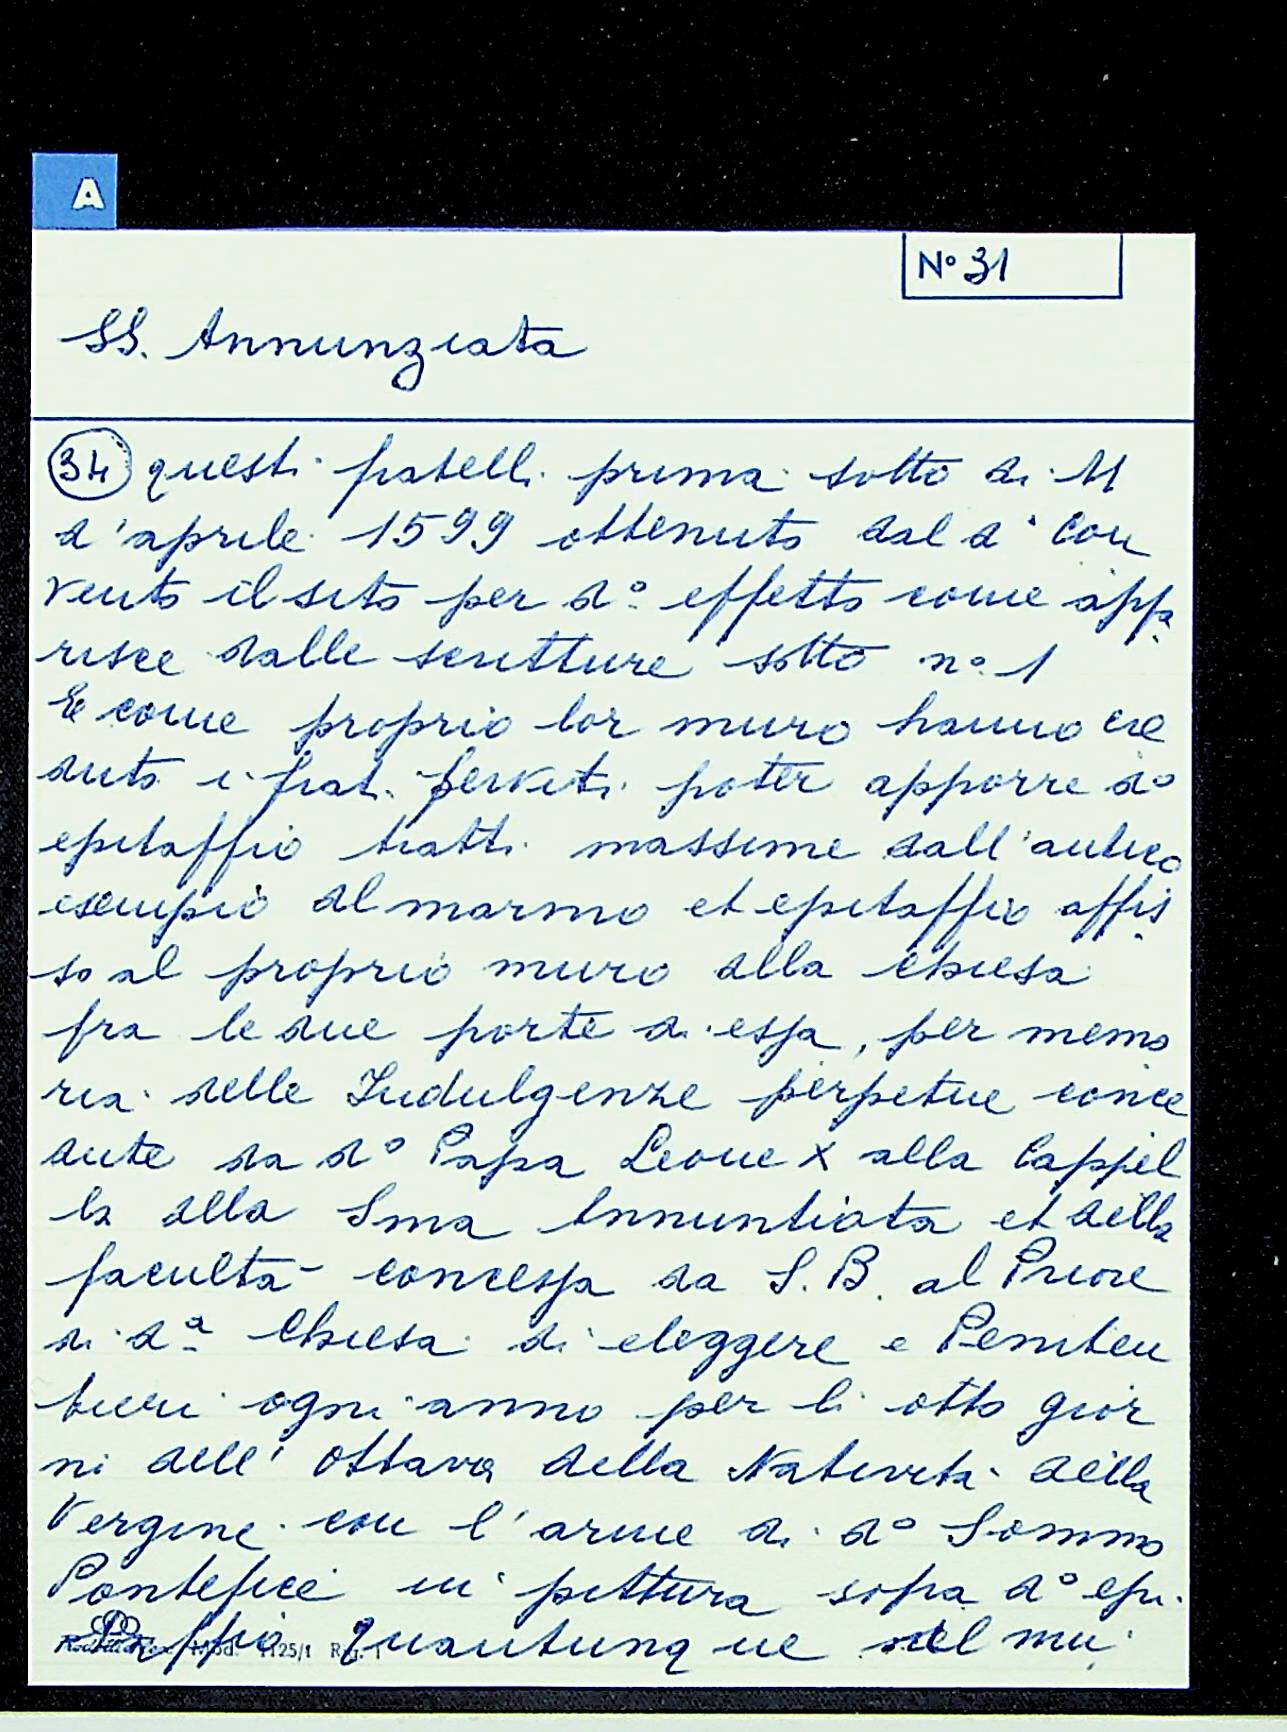 A
N° 31
SS. Annunziata
34 questi fratelli prima sotto di 11
d'aprile 1599 ottenuto dal d° Con
vento il sito per d° effetto come appa
risce dalle scritture sotto n° 1
E come proprio lor muro hanno cre
duto i frat. serviti poter apporre d°
epitaffio tratti massime dall'antico
esempio del marmo et epitaffio affis
so al proprio muro della chiesa
fra le due porte di essa, per memo
ria delle Indulgenze perpetue conce
dute da d° Papa Leone X alla Cappel
la della Sma Annuntiata et della
facultà concessa da S. B. al Priore
di d.ª Chiesa di eleggere e Peniten
tieri ogni anno per li otto gior
ni dell' ottava della Natività della
Vergine con l'arme di d° Sommo
Pontefice in pittura sopra d° epi
taffio quantunque nel mu
Mod. 1125/1